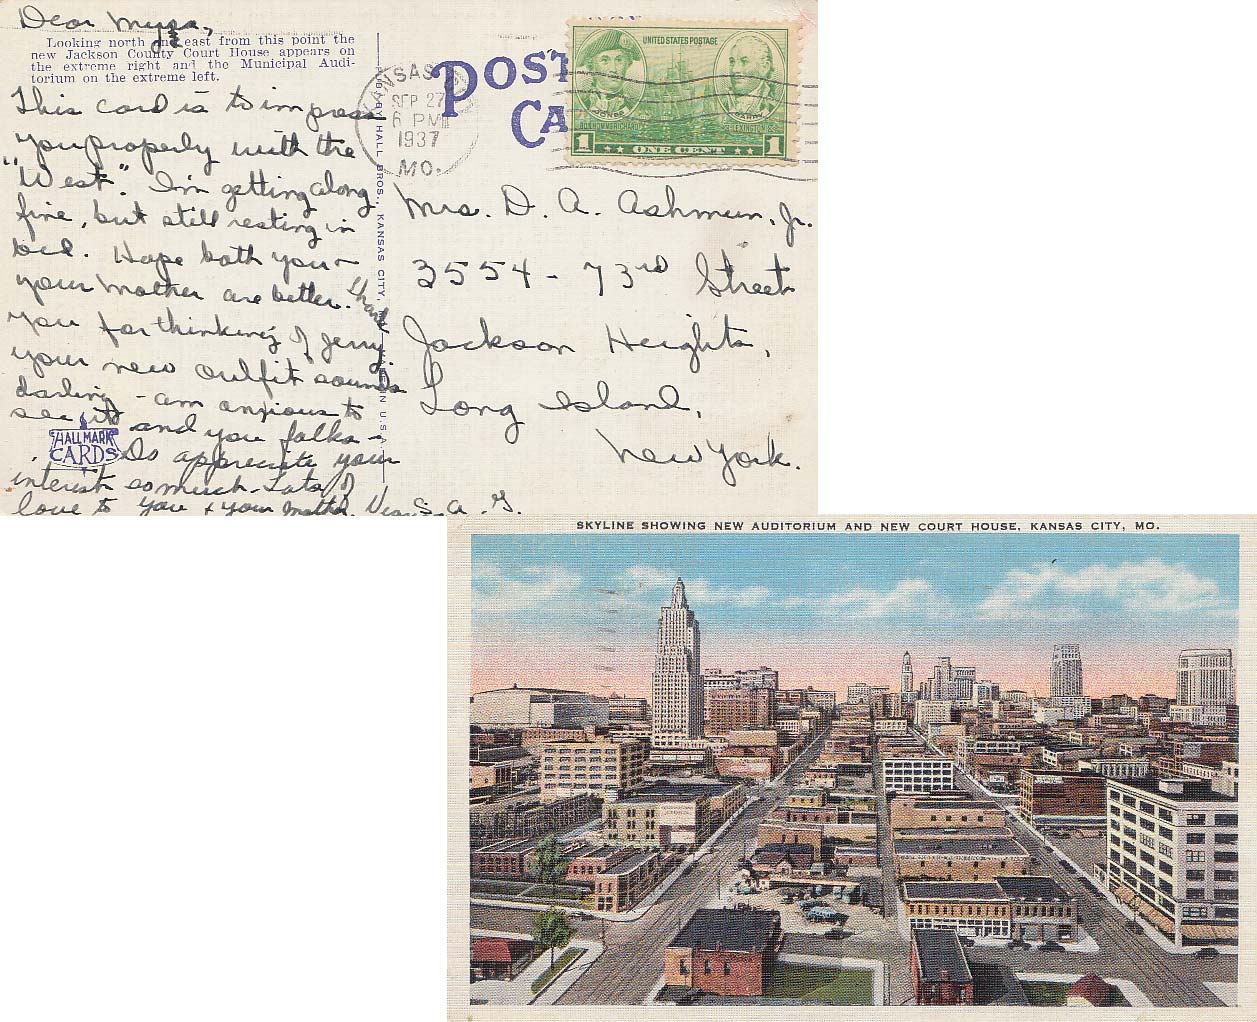 Dear Myra,
Looking north and east from this point the
new Jackson County Court House appears on
the extreme right and the Municipal Audi-
torium on the extreme left.
This card is to impress
you properly with the
"West". I'm getting along
fine, but still resting in
bed. Hope both you &
your Mother are better. Thank
you for thinking of Jerry.
your new outfit sounds
darling - am anxious to
see it and you folks -
Do appreciate your
interest so much. Lots of
love to you & your Mother, S. A. G.
HALLMARK
CARDS
HALL BROS., KANSAS CITY, MADE IN U.S.A.
POST
CA
KANSAS
SEP 27
6 PM
1937
MO.
UNITED STATES POSTAGE
JONES
BARRY
BON HOMME RICHARD
LEXINGTON
1 ONE CENT 1
Mrs. D. A. Ashmun, Jr.
3554 - 73rd Street
Jackson Heights,
Long Island,
New York.
SKYLINE SHOWING NEW AUDITORIUM AND NEW COURT HOUSE, KANSAS CITY, MO.